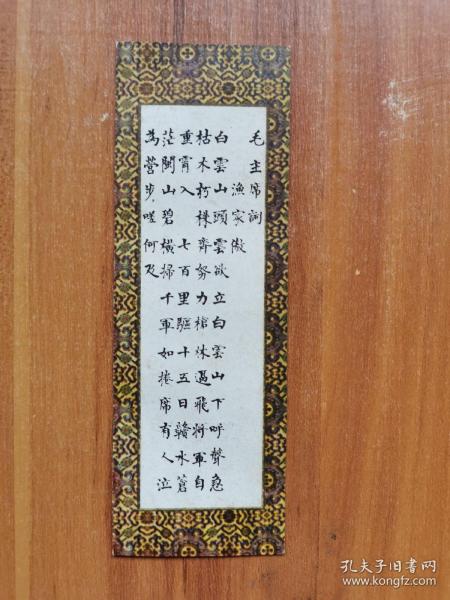 毛主席詞
漁家傲
白雲山頭雲欲立白雲山下呼聲急
枯木朽株齊努力槍林逼飛將軍自
重霄入 七百里驅十五日贛水蒼
茫閩山碧橫掃千軍如捲席有人泣
為營步々嗟何及
孔夫子旧书网
www.kongfz.com